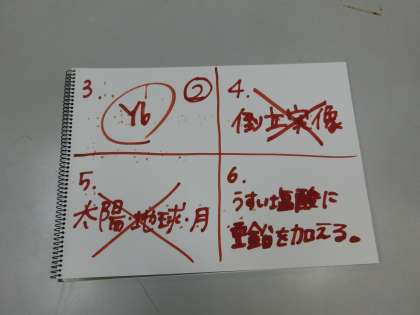 3.
Yb
②
4.
倒立実像
5.
太陽・地球・月
6.
うすい塩酸に
亜鉛を加える。